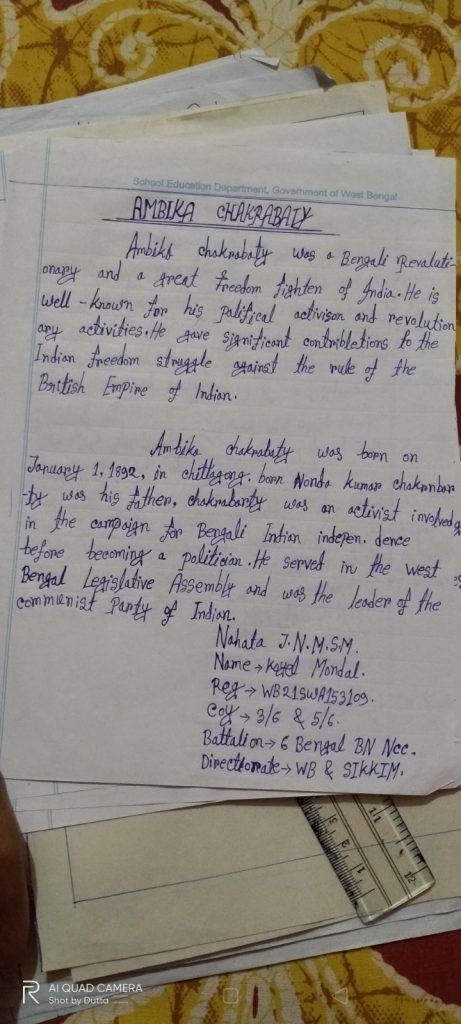 School Education Department, Government of West Bengal
AMBIKA CHAKRABATY
Ambika chakrabaty was a Bengali Revoluti-
onary and a great freedom fighten of India. He is
well-known for his palifical activison and revolution
ary activities. He gave significant contribletions to the
Indian freedom struggle against the rule of the
British Empire of Indian.
Ambika chakrabaty was born on
January 1, 1892, in chittagong. born Nonda kumar chakrnbar
-ty was his father, chakrabarty was an activist involved
in the campaign for Bengali Indian indepen. dence
before becoming a politician. He served in the west
Bengal Legislative Assembly and was the leader of the
communist Party of Indian.
Nahata J.N.M.S.M.
Name → Koyel Mondal.
Reg → WB21SWA153109.
Coy → 3/6 & 5/6.
Battalion → 6 Bengal BN Ncc.
Directorate → WB & SIKKIM.
R AI QUAD CAMERA
Shot by Dutta